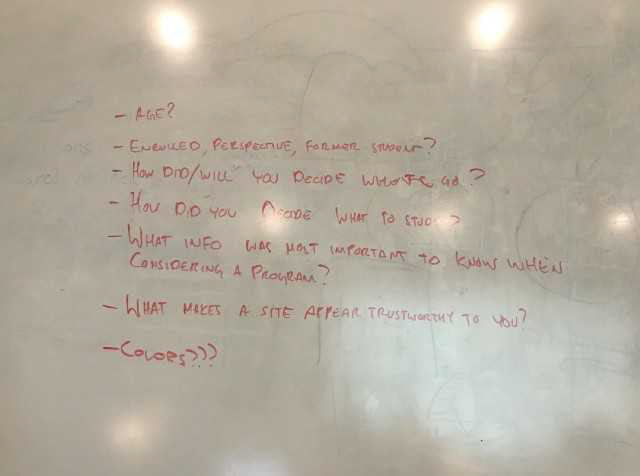 - AGE?
- ENROLLED, PERSPECTIVE, FORMER STUDENT?
- HOW DID/WILL YOU DECIDE WHERE GO?
- HOW DID YOU DECIDE WHAT TO STUDY?
- WHAT INFO WAS MOST IMPORTANT TO KNOW WHEN
CONSIDERING A PROGRAM?
- WHAT MAKES A SITE APPEAR TRUSTWORTHY TO YOU?
- COLORS???